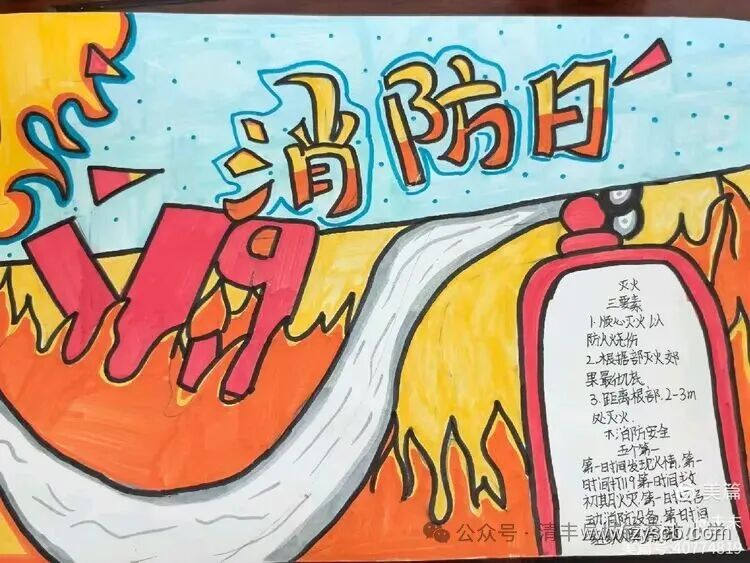 消防日
119
灭火
三要素
1.顺心灭火以
防火烧伤
2.根据部灭火效
果最彻底
3.距离根部.2-3m
处灭火.
消防安全
五个第一
第一时间发现火情,第一
时间打119第一时间扑救
初期火灾.第一时间启
动消防设备.第一时间
公众号·清丰
美篇
40774819